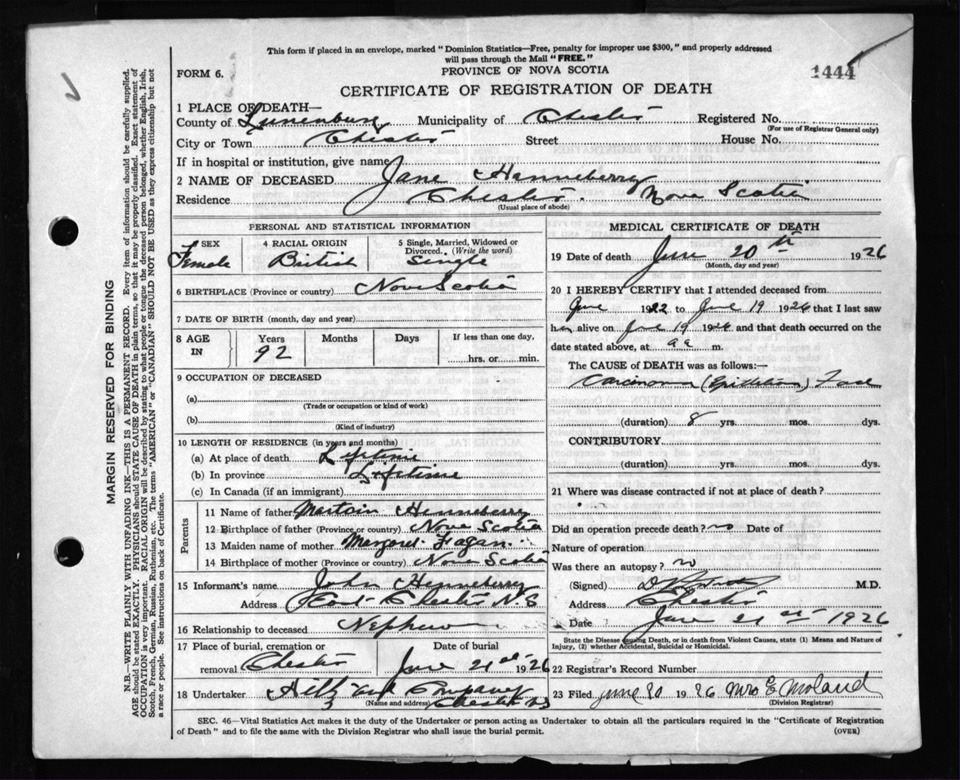 This form if placed in an envelope, marked "Dominion Statistics—Free, penalty for improper use $300," and properly addressed
will pass through the Mail "FREE."
1444
FORM 6.
PROVINCE OF NOVA SCOTIA
CERTIFICATE OF REGISTRATION OF DEATH
1 PLACE OF DEATH—
County of Lunenburg Municipality of Chester Registered No.
(For use of Registrar General only)
City or Town Chester Street House No.
If in hospital or institution, give name
2 NAME OF DECEASED Jane Henneberry
Residence Chester. Nova Scotia
(Usual place of abode)
PERSONAL AND STATISTICAL INFORMATION
SEX 4 RACIAL ORIGIN 5 Single, Married, Widowed or
Divorced. (Write the word)
Female British Single
6 BIRTHPLACE (Province or country) Nova Scotia
7 DATE OF BIRTH (month, day and year)
8 AGE IN Years Months Days If less than one day,
92 hrs. or min.
9 OCCUPATION OF DECEASED
(a)
(Trade or occupation or kind of work)
(b)
(Kind of industry)
10 LENGTH OF RESIDENCE (in years and months)
(a) At place of death Lifetime
(b) In province Lifetime
(c) In Canada (if an immigrant)
Parents
11 Name of father Martain Henneberry
12 Birthplace of father (Province or country) Nova Scotia
13 Maiden name of mother Margaret Fagan
14 Birthplace of mother (Province or country) Nova Scotia
15 Informant's name John Henneberry
Address Chester N.S
16 Relationship to deceased Nephew
17 Place of burial, cremation or Date of burial
removal Chester June 21st 1926
18 Undertaker and Company
(Name and address) Chester NS
MEDICAL CERTIFICATE OF DEATH
19 Date of death June 20th 1926
(Month, day and year)
20 I HEREBY CERTIFY that I attended deceased from
June 1922 to June 19 1926 that I last saw
her alive on June 19 1926 and that death occurred on the
date stated above, at m.
The CAUSE of DEATH was as follows:
Carcinoma (Epithelioma) Face
(duration) 8 yrs. mos. dys.
CONTRIBUTORY
(duration) yrs. mos. dys.
21 Where was disease contracted if not at place of death?
Did an operation precede death? no Date of
Nature of operation
Was there an autopsy? no
(Signed) M.D.
Address Chester
Date June 21st 1926
State the Disease causing Death, or in death from Violent Causes, state (1) Means and Nature of
Injury, (2) whether Accidental, Suicidal or Homicidal.
22 Registrar's Record Number
23 Filed June 20 1926 Mrs E Moland
(Division Registrar)
SEC. 46—Vital Statistics Act makes it the duty of the Undertaker or person acting as Undertaker to obtain all the particulars required in the "Certificate of Registration
of Death" and to file the same with the Division Registrar who shall issue the burial permit. (OVER)
MARGIN RESERVED FOR BINDING
N.B.—WRITE PLAINLY WITH UNFADING INK—THIS IS A PERMANENT RECORD. Every item of information should be carefully supplied.
AGE should be stated EXACTLY. PHYSICIANS should STATE CAUSE OF DEATH in plain terms, so that it may be properly classified. Exact statement of
OCCUPATION is very important. RACIAL ORIGIN will be described by stating to what people or tongue the deceased person belonged, whether English, Irish,
Scotch, French, German, Russian, Ruthenian, etc. The terms "AMERICAN" or "CANADIAN" SHOULD NOT BE USED as they express citizenship but not
a race or people. See instructions on back of Certificate.